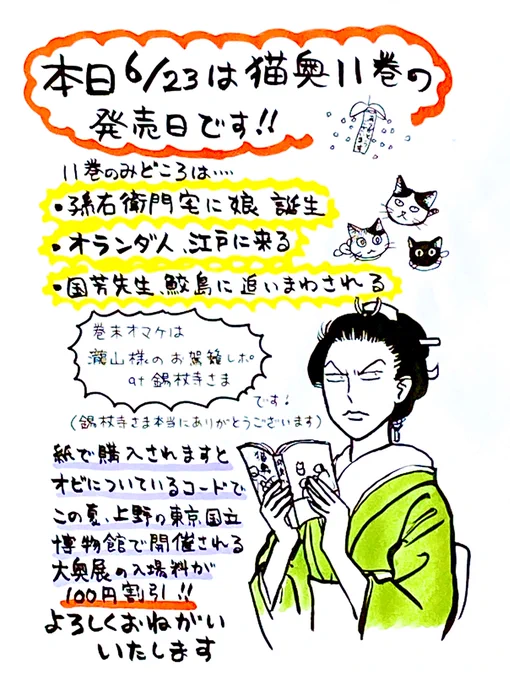 本日6/23は猫奥11巻の
発売日です!!
11巻のみどころは‥‥
・孫右衛門宅に娘 誕生
・オランダ人、江戸に来る
・国芳先生、鮫島に追いまわされる
巻末オマケは
瀧山様のお駕籠レポ。
at 錫杖寺さま
です!
(錫杖寺さま本当にありがとうございます)
紙で購入されますと
オビについているコードで
この夏、上野の東京国立
博物館で開催される
大奥展の入場料が
100円割引!!
よろしくおねがい
いたします
猫奥